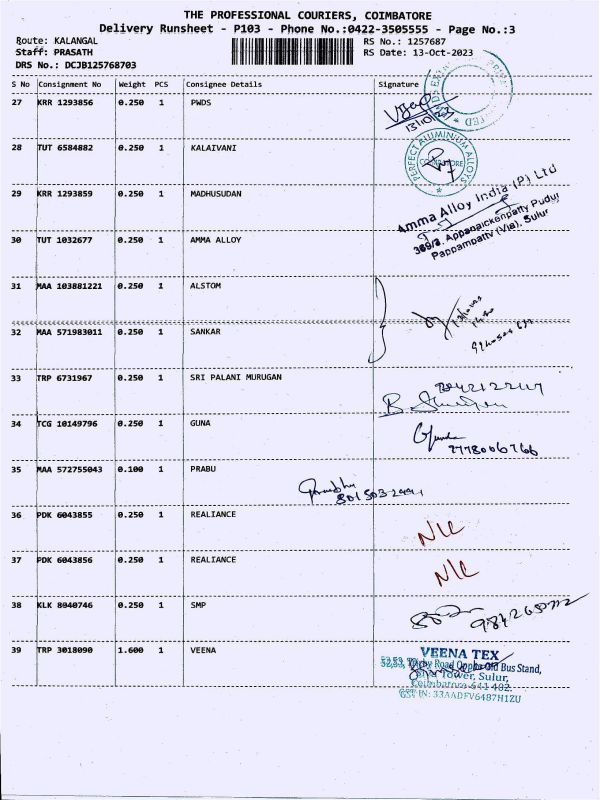 THE PROFESSIONAL COURIERS, COIMBATORE
Delivery Runsheet - P103 - Phone No.:0422-3505555 - Page No.:3
Route: KALANGAL RS No.: 1257687
Staff: PRASATH RS Date: 13-Oct-2023
DRS No.: DCJB125768703
S No Consignment No Weight PCS Consignee Details Signature
27 KRR 1293856 0.250 1 PWDS
13/10/23
28 TUT 6584882 0.250 1 KALAIVANI
PERFECT ALUMINIUM ALLOYS
COIMBATORE
29 KRR 1293859 0.250 1 MADHUSUDAN
Amma Alloy India (P) Ltd
369/3, Appanaickenpatty Pudur
Pappampatty (Via), Sulur
30 TUT 1032677 0.250 1 AMMA ALLOY
31 MAA 103881221 0.250 1 ALSTOM
32 MAA 571983011 0.250 1 SANKAR
33 TRP 6731967 0.250 1 SRI PALANI MURUGAN
34 TCG 10149796 0.250 1 GUNA
Guna
9778006766
35 MAA 572755043 0.100 1 PRABU
36 PDK 6043855 0.250 1 REALIANCE
N/C
37 PDK 6043856 0.250 1 REALIANCE
N/C
38 KLK 8040746 0.250 1 SMP
39 TRP 3018090 1.600 1 VEENA
VEENA TEX
Road Opp. Old Bus Stand,
Tower, Sulur,
Coimbatore-641 402.
GST IN: 33AADFV6487H1ZU